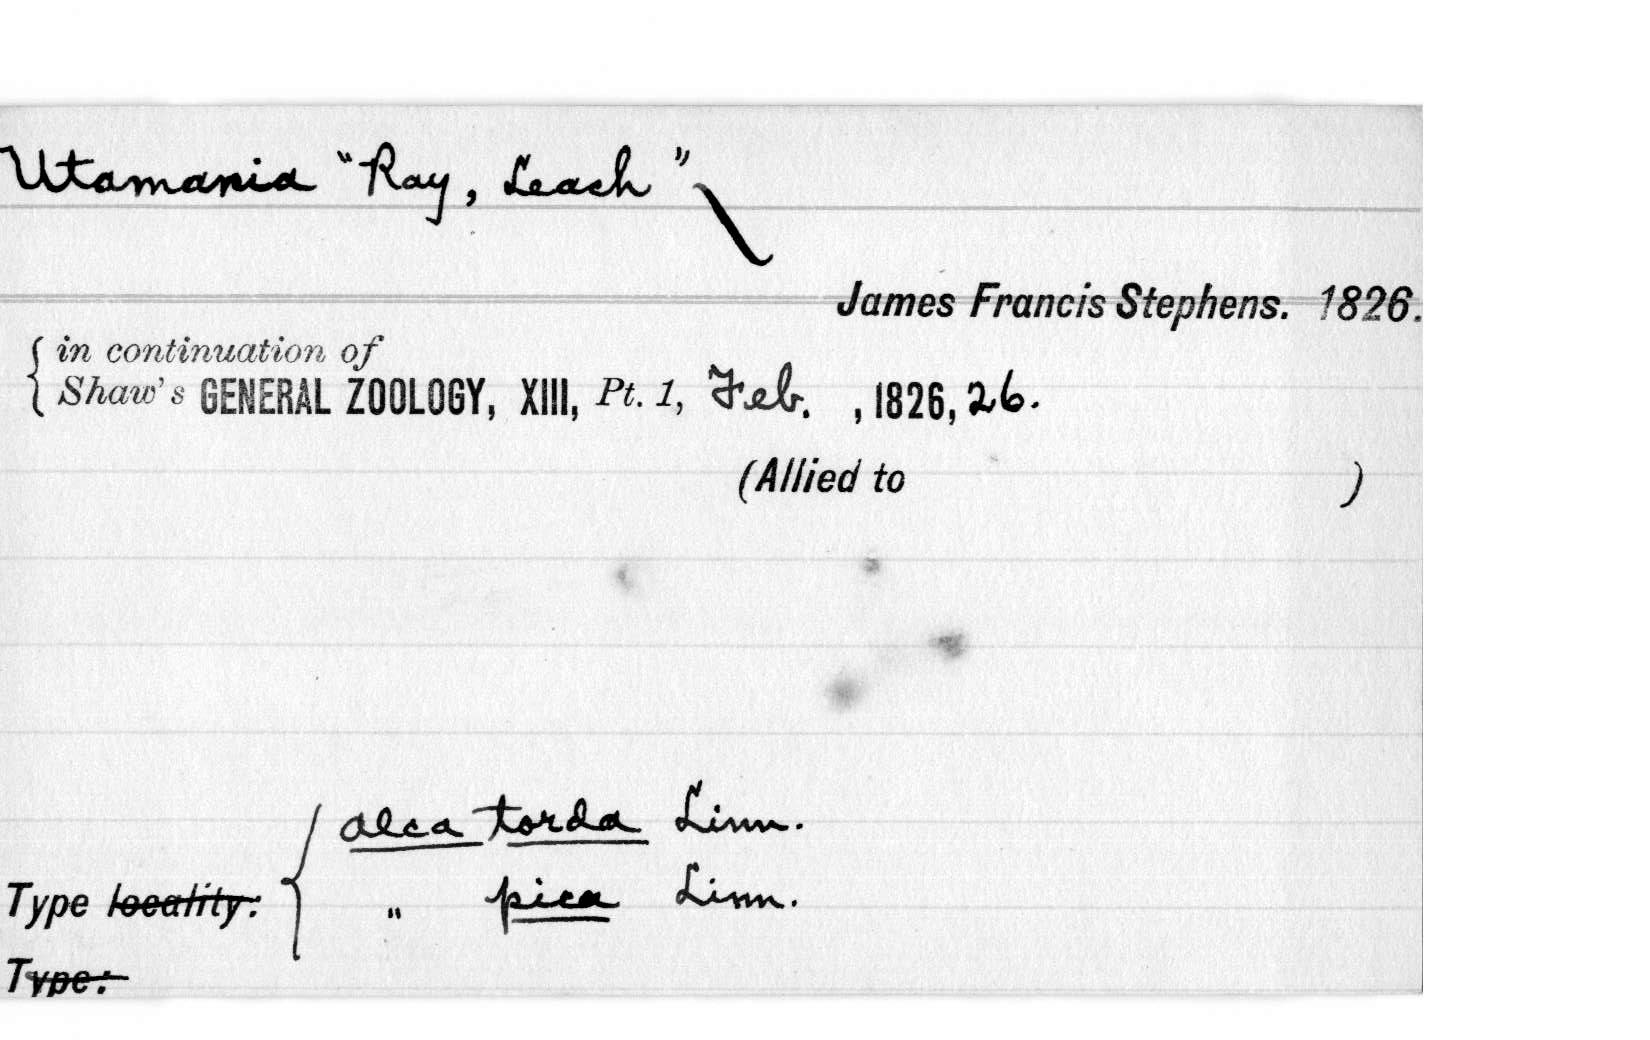 Utamania "Ray, Leach"
James Francis Stephens. 1826.
in continuation of
Shaw's GENERAL ZOOLOGY, XIII, Pt. 1, Feb. , 1826, 26.
(Allied to )
alca torda Linn.
Type locality: " pica Linn.
Type: